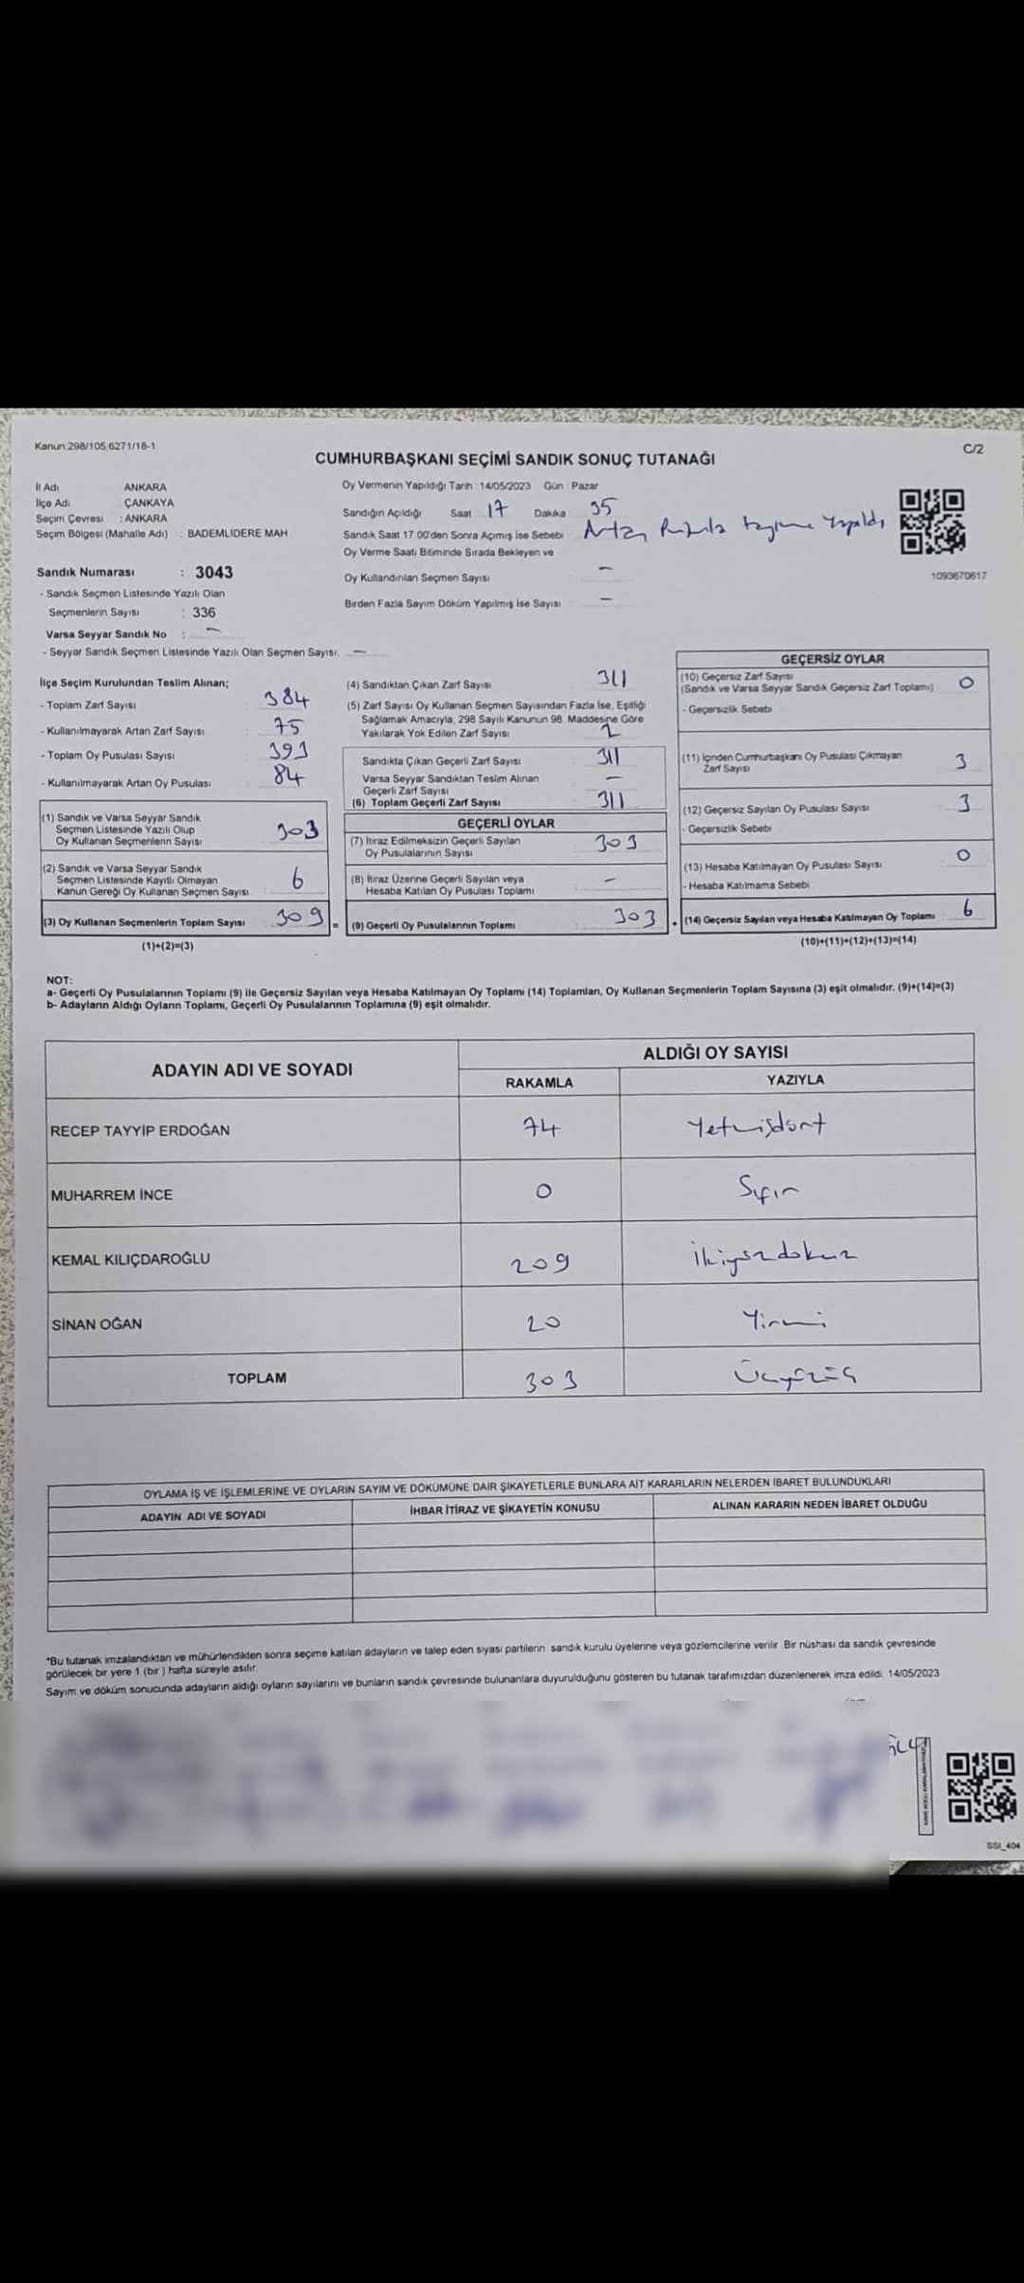 Kanun:298/105,6271/18-1
C/2
CUMHURBAŞKANI SEÇİMİ SANDIK SONUÇ TUTANAĞI
İl Adı ANKARA
İlçe Adı ÇANKAYA
Seçim Çevresi : ANKARA
Seçim Bölgesi (Mahalle Adı) : BADEMLIDERE MAH
Sandık Numarası : 3043
- Sandık Seçmen Listesinde Yazılı Olan
Seçmenlerin Sayısı : 336
Varsa Seyyar Sandık No : –
- Seyyar Sandık Seçmen Listesinde Yazılı Olan Seçmen Sayısı. –
Oy Vermenin Yapıldığı Tarih : 14/05/2023 Gün : Pazar
Sandığın Açıldığı Saat 17 Dakika 35
Sandık Saat 17:00'den Sonra Açımış İse Sebebi Artan Pusula sayımı Yapıldı
Oy Verme Saati Bitiminde Sırada Bekleyen ve
Oy Kullandırılan Seçmen Sayısı –
Birden Fazla Sayım Döküm Yapılmış İse Sayısı –
1093670617
İlçe Seçim Kurulundan Teslim Alınan;
- Toplam Zarf Sayısı 384
- Kullanılmayarak Artan Zarf Sayısı 75
- Toplam Oy Pusulası Sayısı 393
- Kullanılmayarak Artan Oy Pusulası 84
(1) Sandık ve Varsa Seyyar Sandık
Seçmen Listesinde Yazılı Olup
Oy Kullanan Seçmenlerin Sayısı 303
(2) Sandık ve Varsa Seyyar Sandık
Seçmen Listesinde Kayıtlı Olmayan
Kanun Gereği Oy Kullanan Seçmen Sayısı 6
(3) Oy Kullanan Seçmenlerin Toplam Sayısı 309 =
(1)+(2)=(3)
(4) Sandıktan Çıkan Zarf Sayısı 311
(5) Zarf Sayısı Oy Kullanan Seçmen Sayısından Fazla İse, Eşitliği
Sağlamak Amacıyla, 298 Sayılı Kanunun 98. Maddesine Göre
Yakılarak Yok Edilen Zarf Sayısı 2
Sandıkta Çıkan Geçerli Zarf Sayısı 311
Varsa Seyyar Sandıktan Teslim Alınan
Geçerli Zarf Sayısı –
(6) Toplam Geçerli Zarf Sayısı 311
GEÇERLİ OYLAR
(7) İtiraz Edilmeksizin Geçerli Sayılan
Oy Pusulalarının Sayısı 303
(8) İtiraz Üzerine Geçerli Sayılan veya
Hesaba Katılan Oy Pusulası Toplamı –
(9) Geçerli Oy Pusulalarının Toplamı 303 +
GEÇERSİZ OYLAR
(10) Geçersiz Zarf Sayısı
(Sandık ve Varsa Seyyar Sandık Geçersiz Zarf Toplamı) 0
- Geçersizlik Sebebi
(11) İçinden Cumhurbaşkanı Oy Pusulası Çıkmayan
Zarf Sayısı 3
(12) Geçersiz Sayılan Oy Pusulası Sayısı 3
- Geçersizlik Sebebi
(13) Hesaba Katılmayan Oy Pusulası Sayısı 0
- Hesaba Katılmama Sebebi
(14) Geçersiz Sayılan veya Hesaba Katılmayan Oy Toplamı 6
(10)+(11)+(12)+(13)=(14)
NOT:
a- Geçerli Oy Pusulalarının Toplamı (9) ile Geçersiz Sayılan veya Hesaba Katılmayan Oy Toplamı (14) Toplamları, Oy Kullanan Seçmenlerin Toplam Sayısına (3) eşit olmalıdır. (9)+(14)=(3)
b- Adayların Aldığı Oyların Toplamı, Geçerli Oy Pusulalarının Toplamına (9) eşit olmalıdır.
ADAYIN ADI VE SOYADI ALDIĞI OY SAYISI
RAKAMLA YAZIYLA
RECEP TAYYİP ERDOĞAN 74 Yetmişdört
MUHARREM İNCE 0 Sıfır
KEMAL KILIÇDAROĞLU 209 İkiyüzdokuz
SİNAN OĞAN 20 Yirmi
TOPLAM 303 Üçyüzüç
OYLAMA İŞ VE İŞLEMLERİNE VE OYLARIN SAYIM VE DÖKÜMÜNE DAİR ŞİKAYETLERLE BUNLARA AİT KARARLARIN NELERDEN İBARET BULUNDUKLARI
ADAYIN ADI VE SOYADI İHBAR İTİRAZ VE ŞİKAYETİN KONUSU ALINAN KARARIN NEDEN İBARET OLDUĞU
*Bu tutanak imzalandıktan ve mühürlendikten sonra seçime katılan adayların ve talep eden siyasi partilerin sandık kurulu üyelerine veya gözlemcilerine verilir. Bir nüshası da sandık çevresinde
görülecek bir yere 1 (bir ) hafta süreyle asılır.
Sayım ve döküm sonucunda adayların aldığı oyların sayılarını ve bunların sandık çevresinde bulunanlara duyurulduğunu gösteren bu tutanak tarafımızdan düzenlenerek imza edildi. 14/05/2023
SSI_404